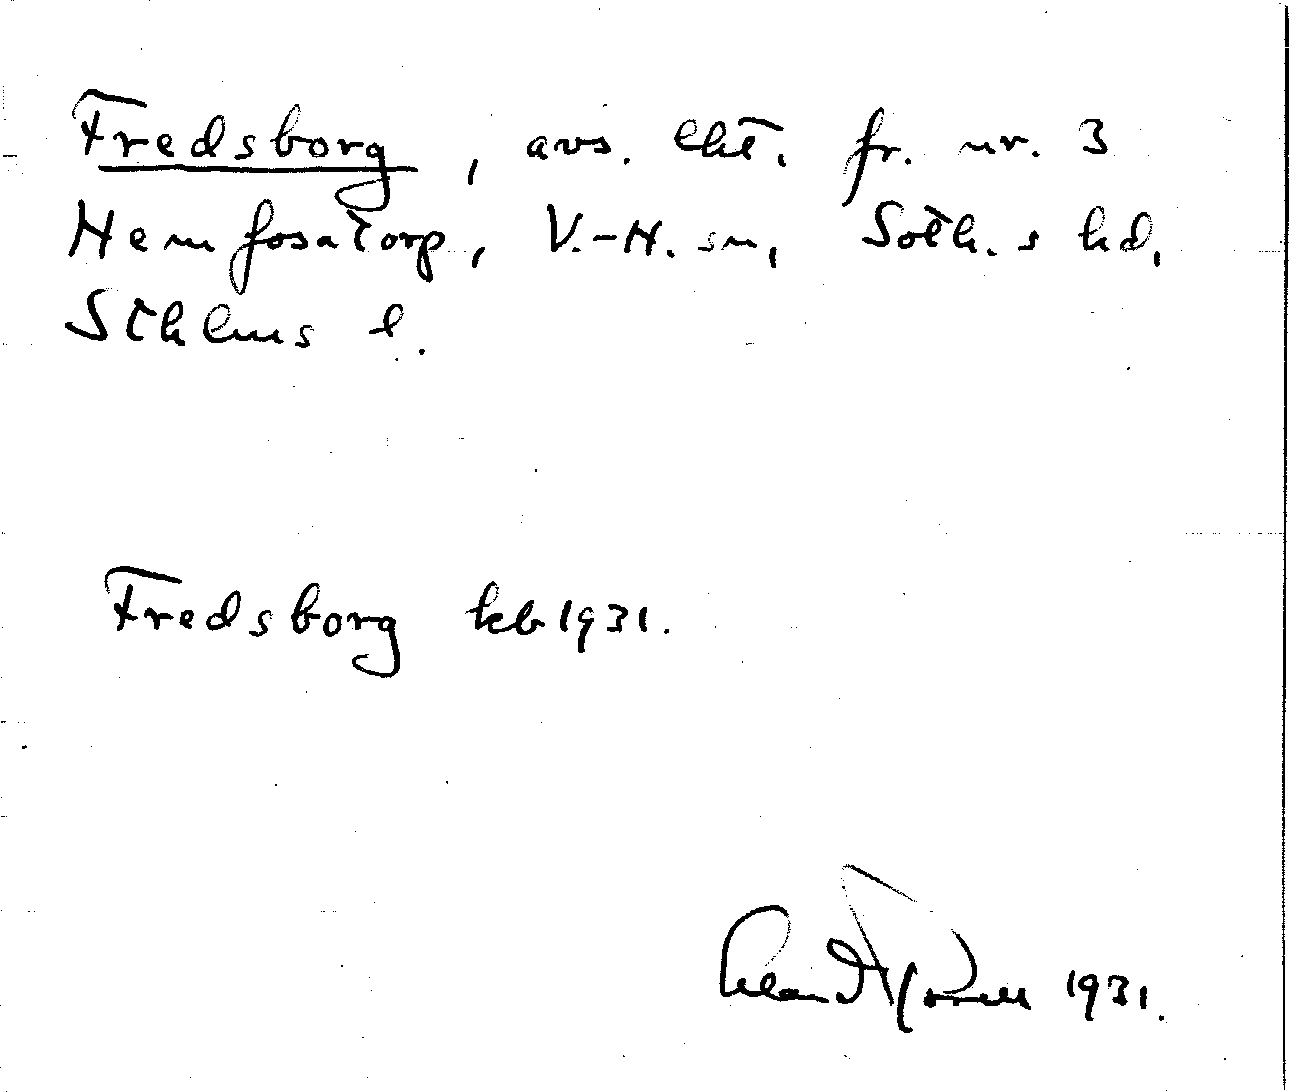 Fredsborg, avs. lht. fr. nr. 3
Hemfosatorp, V.-H. sn, Soth. s hd,
Sthlms l.
Fredsborg kb 1931.
1931.